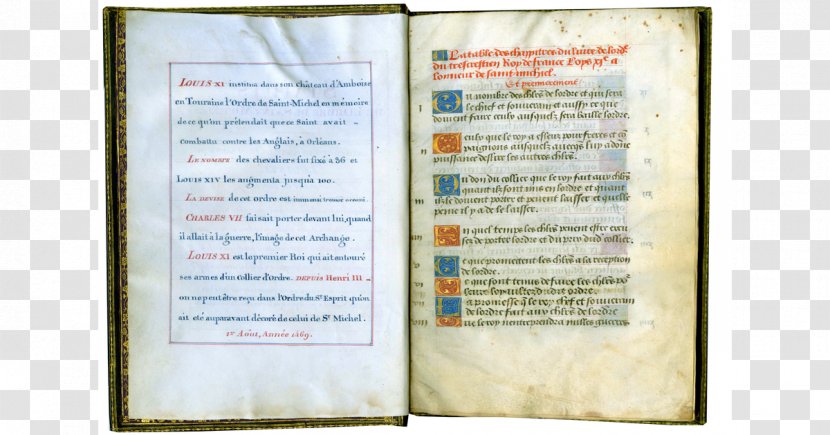 LOUIS XI institua dans son château d'Amboise
en Touraine l'Ordre de Saint-Michel en mémoire
de ce qu'on prétendait que ce Saint avait
combattu contre les Anglais, à Orléans.
LE NOMBRE des chevaliers fut fixé à 36 et
LOUIS XIV les augmenta jusqu'à 100.
LA DEVISE de cet ordre est immanis tremor oceani.
CHARLES VII faisait porter devant lui, quand
il allait à la guerre, l'image de cet Archange.
LOUIS XI est le premier Roi qui ait entouré
ses armes d'un collier d'Ordre. DEPUIS Henri III
on ne peut être reçu dans l'Ordre du St. Esprit qu'on
ait été auparavant décoré de celui de St. Michel.
1er Aout, Année 1469.
La table des chappitres du livre de lordre
du trescrestien Roy de france Loys XIe a
lonneur de saint michel
Et premierement
I
Du nombre des chlrs de lordre et qui sera
le chief et souverain et aussy ce que
doivent faire ceulx ausquelz sera baille lordre.
Ceulx que le roy a esleuz pour freres et co
paignons ausquelz aveques luy a donne
puissance deslire ses autres chlrs.
Du don du collier que le roy fait aux chlrs
quant ilz sont mis en lordre et quant
ilz doivent porter et pevent laisser et quelle
peine il y a de le laisser.
En quel temps les chlrs pevent estre excu
sez de porter lordre et du pris dud collier.
Ce que promectent les chlrs a la reception
de lordre.
Ce que sont tenus de faire les chlrs
La promesse que le roy chief et souverain
de lordre fait aux chlrs de son ordre
Que le roy nentreprendra nulles guerres